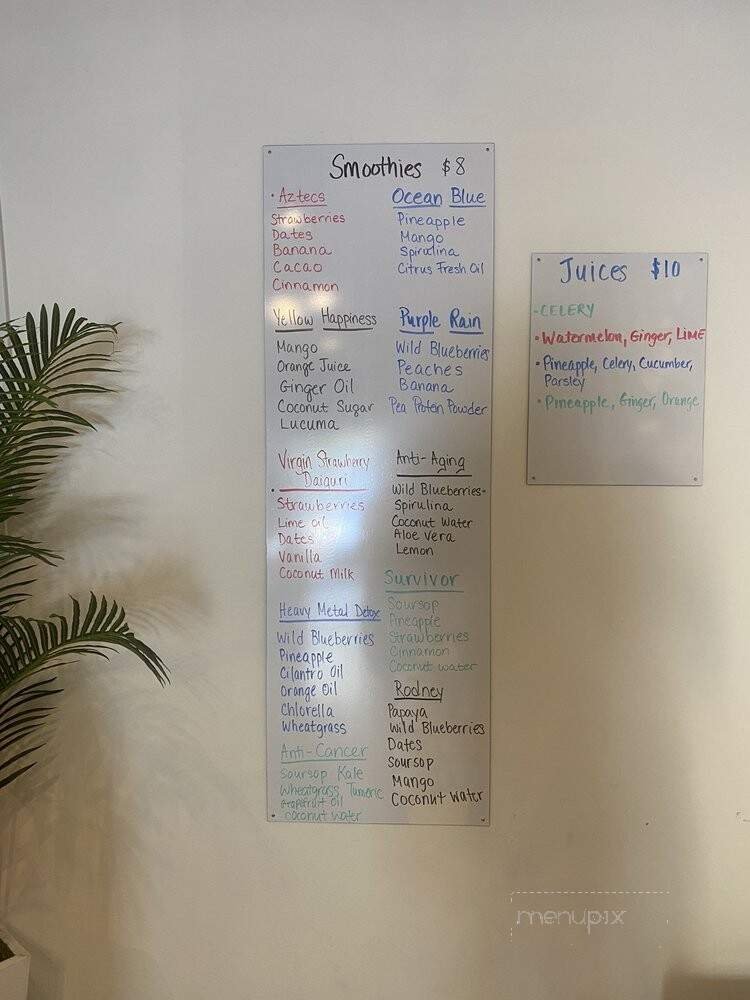 Smoothies $8
• Aztecs
Strawberries
Dates
Banana
Cacao
Cinnamon
Yellow Happiness
Mango
Orange Juice
Ginger Oil
Coconut Sugar
Lucuma
Virgin Strawberry
Daiguri
Strawberries
Lime oil
Dates
Vanilla
Coconut Milk
Heavy Metal Detox
Wild Blueberries
Pineapple
Cilantro Oil
Orange Oil
Chlorella
Wheatgrass
Anti-Cancer
Soursop Kale
Wheatgrass Tumeric
Grapefruit Oil
Coconut water
Ocean Blue
Pineapple
Mango
Spirulina
Citrus Fresh Oil
Purple Rain
Wild Blueberries
Peaches
Banana
Pea Protein Powder
Anti-Aging
Wild Blueberries
Spirulina
Coconut Water
Aloe Vera
Lemon
Survivor
Soursop
Pineapple
Strawberries
Cinnamon
Coconut water
Rodney
Papaya
Wild Blueberries
Dates
Soursop
Mango
Coconut Water
Juices $10
- CELERY
• Watermelon, Ginger, LIME
• Pineapple, Celery, Cucumber,
Parsley
• Pineapple, Ginger, Orange
menupix